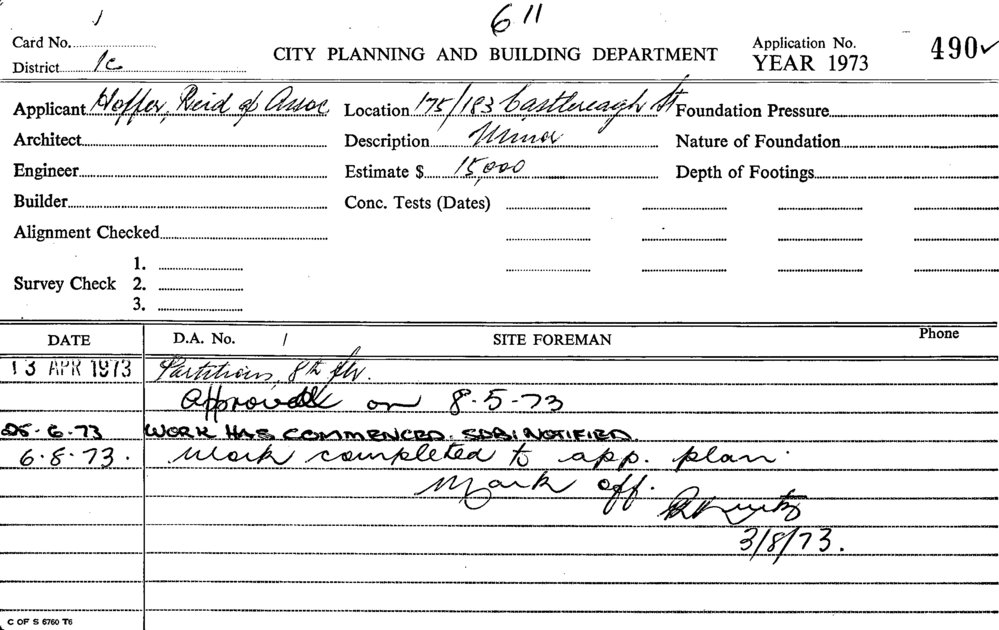 611
Card No. 1
District 1c
CITY PLANNING AND BUILDING DEPARTMENT
Application No. 490✓
YEAR 1973
Applicant Hoffer, Reid & Assoc
Location 175/183 Castlereagh St
Foundation Pressure
Architect
Description Minor
Nature of Foundation
Engineer
Estimate $ 15,000
Depth of Footings
Builder
Conc. Tests (Dates)
Alignment Checked
Survey Check 1.
2.
3.
DATE D.A. No. / SITE FOREMAN Phone
13 APR 1973 Partitions, 8th flr.
Approved on 8.5.73
25.6.73 WORK HAS COMMENCED. SDBI NOTIFIED.
6.8.73. Work completed to app. plan.
Mark off.
3/8/73.
C OF S 6760 T6